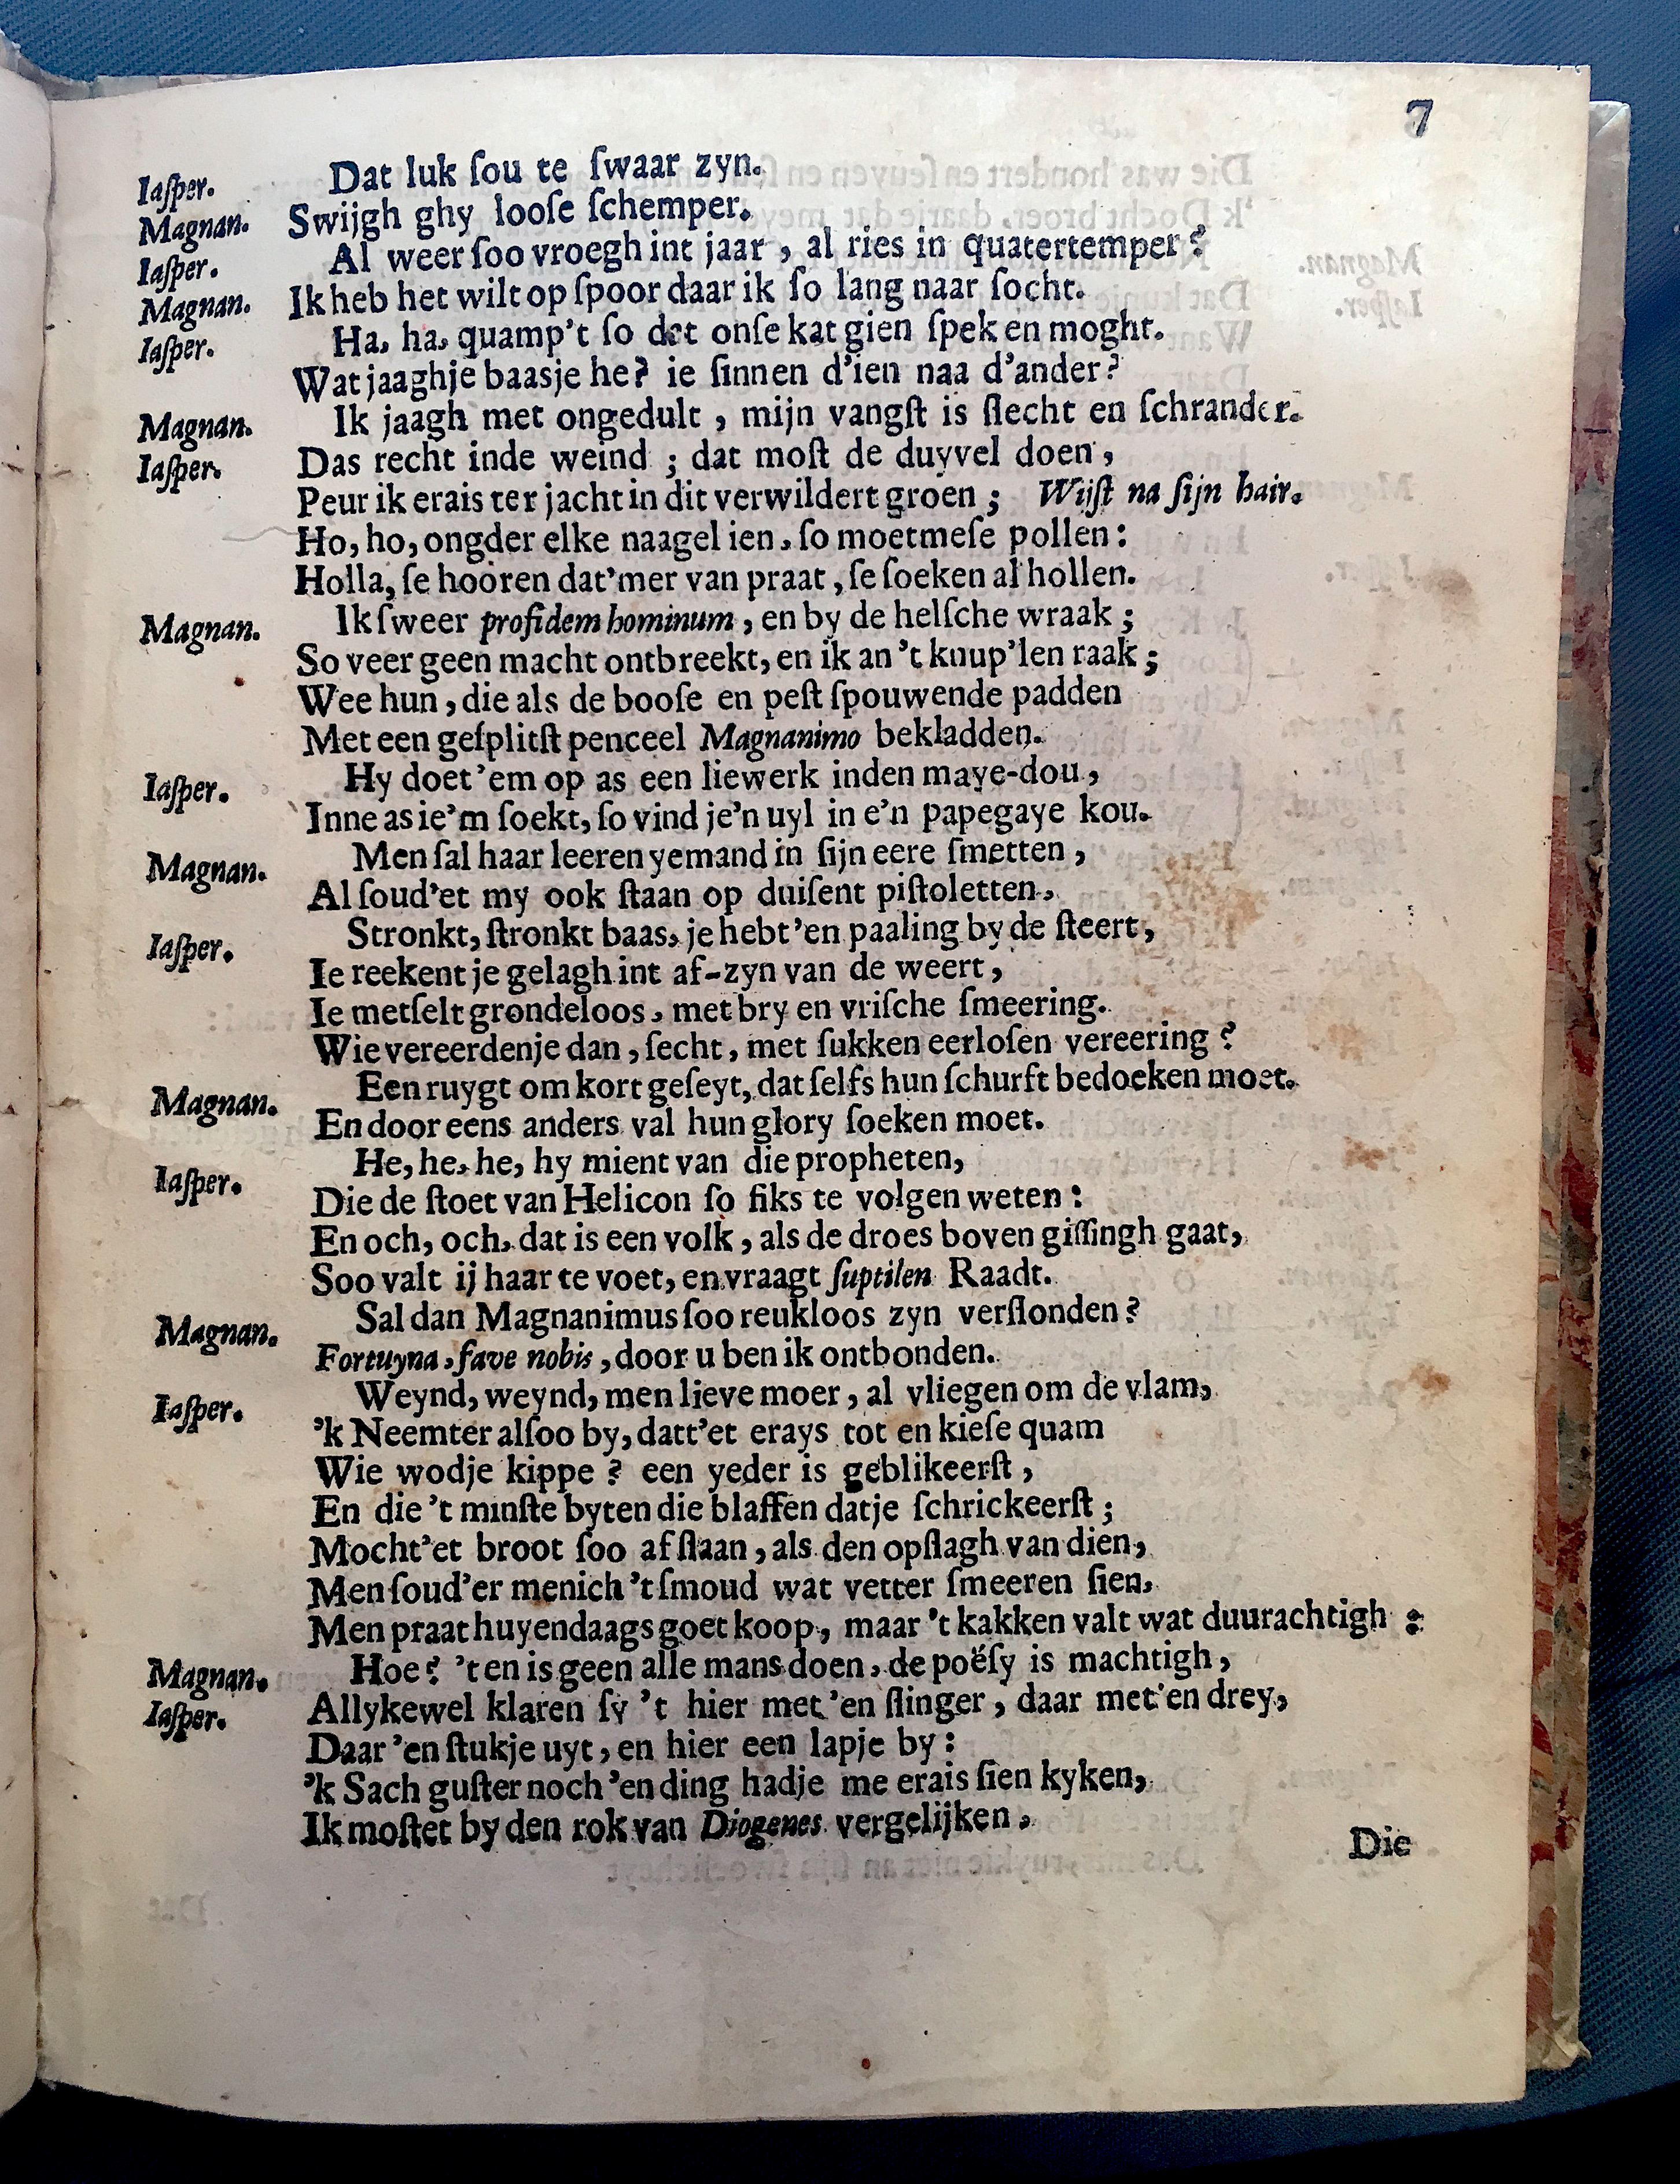 7
Iaſper. Dat luk ſou te ſwaar zyn.
Magnan. Swijgh ghy looſe ſchemper.
Iaſper. Al weer ſoo vroegh int jaar, al ries in quatertemper?
Magnan. Ik heb het wilt op ſpoor daar ik ſo lang naar ſocht.
Iaſper. Ha, ha, quamp't ſo dat onſe kat gien ſpek en moght.
Wat jaaghje baasje he? ie ſinnen d'ien naa d'ander?
Magnan. Ik jaagh met ongedult, mijn vangſt is ſlecht en ſchrander.
Iaſper. Das recht inde weind; dat moſt de duyvel doen,
Peur ik erais ter jacht in dit verwildert groen; Wijſt na ſijn hair.
Ho, ho, ongder elke naagel ien, ſo moetmeſe pollen:
Holla, ſe hooren dat'mer van praat, ſe ſoeken al hollen.
Magnan. Ik ſweer profidem hominum, en by de helſche wraak;
So veer geen macht ontbreekt, en ik an 't knup'len raak;
Wee hun, die als de booſe en peſt ſpouwende padden
Met een geſplitſt penceel Magnanimo bekladden.
Iaſper. Hy doet 'em op as een liewerk inden maye-dou,
Inne as ie'm ſoekt, ſo vind je'n uyl in e'n papegaye kou.
Magnan. Men ſal haar leeren yemand in ſijn eere ſmetten,
Al ſoud'et my ook ſtaan op duiſent piſtoletten,
Iaſper. Stronkt, ſtronkt baas, je hebt 'en paaling by de ſteert,
Ie reekent je gelagh int af-zyn van de weert,
Ie metſelt grondeloos, met bry en vriſche ſmeering.
Wie vereerdenje dan, ſecht, met ſukken eerloſen vereering?
Magnan. Een ruygt om kort geſeyt, dat ſelfs hun ſchurft bedoeken moet.
En door eens anders val hun glory ſoeken moet.
Iaſper. He, he, he, hy mient van die propheten,
Die de ſtoet van Helicon ſo fiks te volgen weten:
En och, och, dat is een volk, als de droes boven giſſingh gaat,
Soo valt ij haar te voet, en vraagt ſuptilen Raadt.
Magnan. Sal dan Magnanimus ſoo reukloos zyn verſlonden?
Fortuyna, fave nobis, door u ben ik ontbonden.
Iaſper. Weynd, weynd, men lieve moer, al vliegen om de vlam,
'k Neemter alſoo by, datt'et erays tot en kieſe quam
Wie wodje kippe? een yeder is geblikeerſt,
En die 't minſte byten die blaffen datje ſchrickeerſt;
Mocht'et broot ſoo af ſlaan, als den opſlagh van dien,
Men ſoud'er menich 't ſmoud wat vetter ſmeeren ſien,
Men praat huyendaags goet koop, maar 't kakken valt wat duurachtigh:
Magnan. Hoe? 't en is geen alle mans doen, de poëſy is machtigh,
Iaſper. Allykewel klaren ſy 't hier met 'en ſlinger, daar met 'en drey,
Daar 'en ſtukje uyt, en hier een lapje by:
'k Sach guſter noch 'en ding hadje me erais ſien kyken,
Ik moſtet by den rok van Diogenes vergelijken,
Die